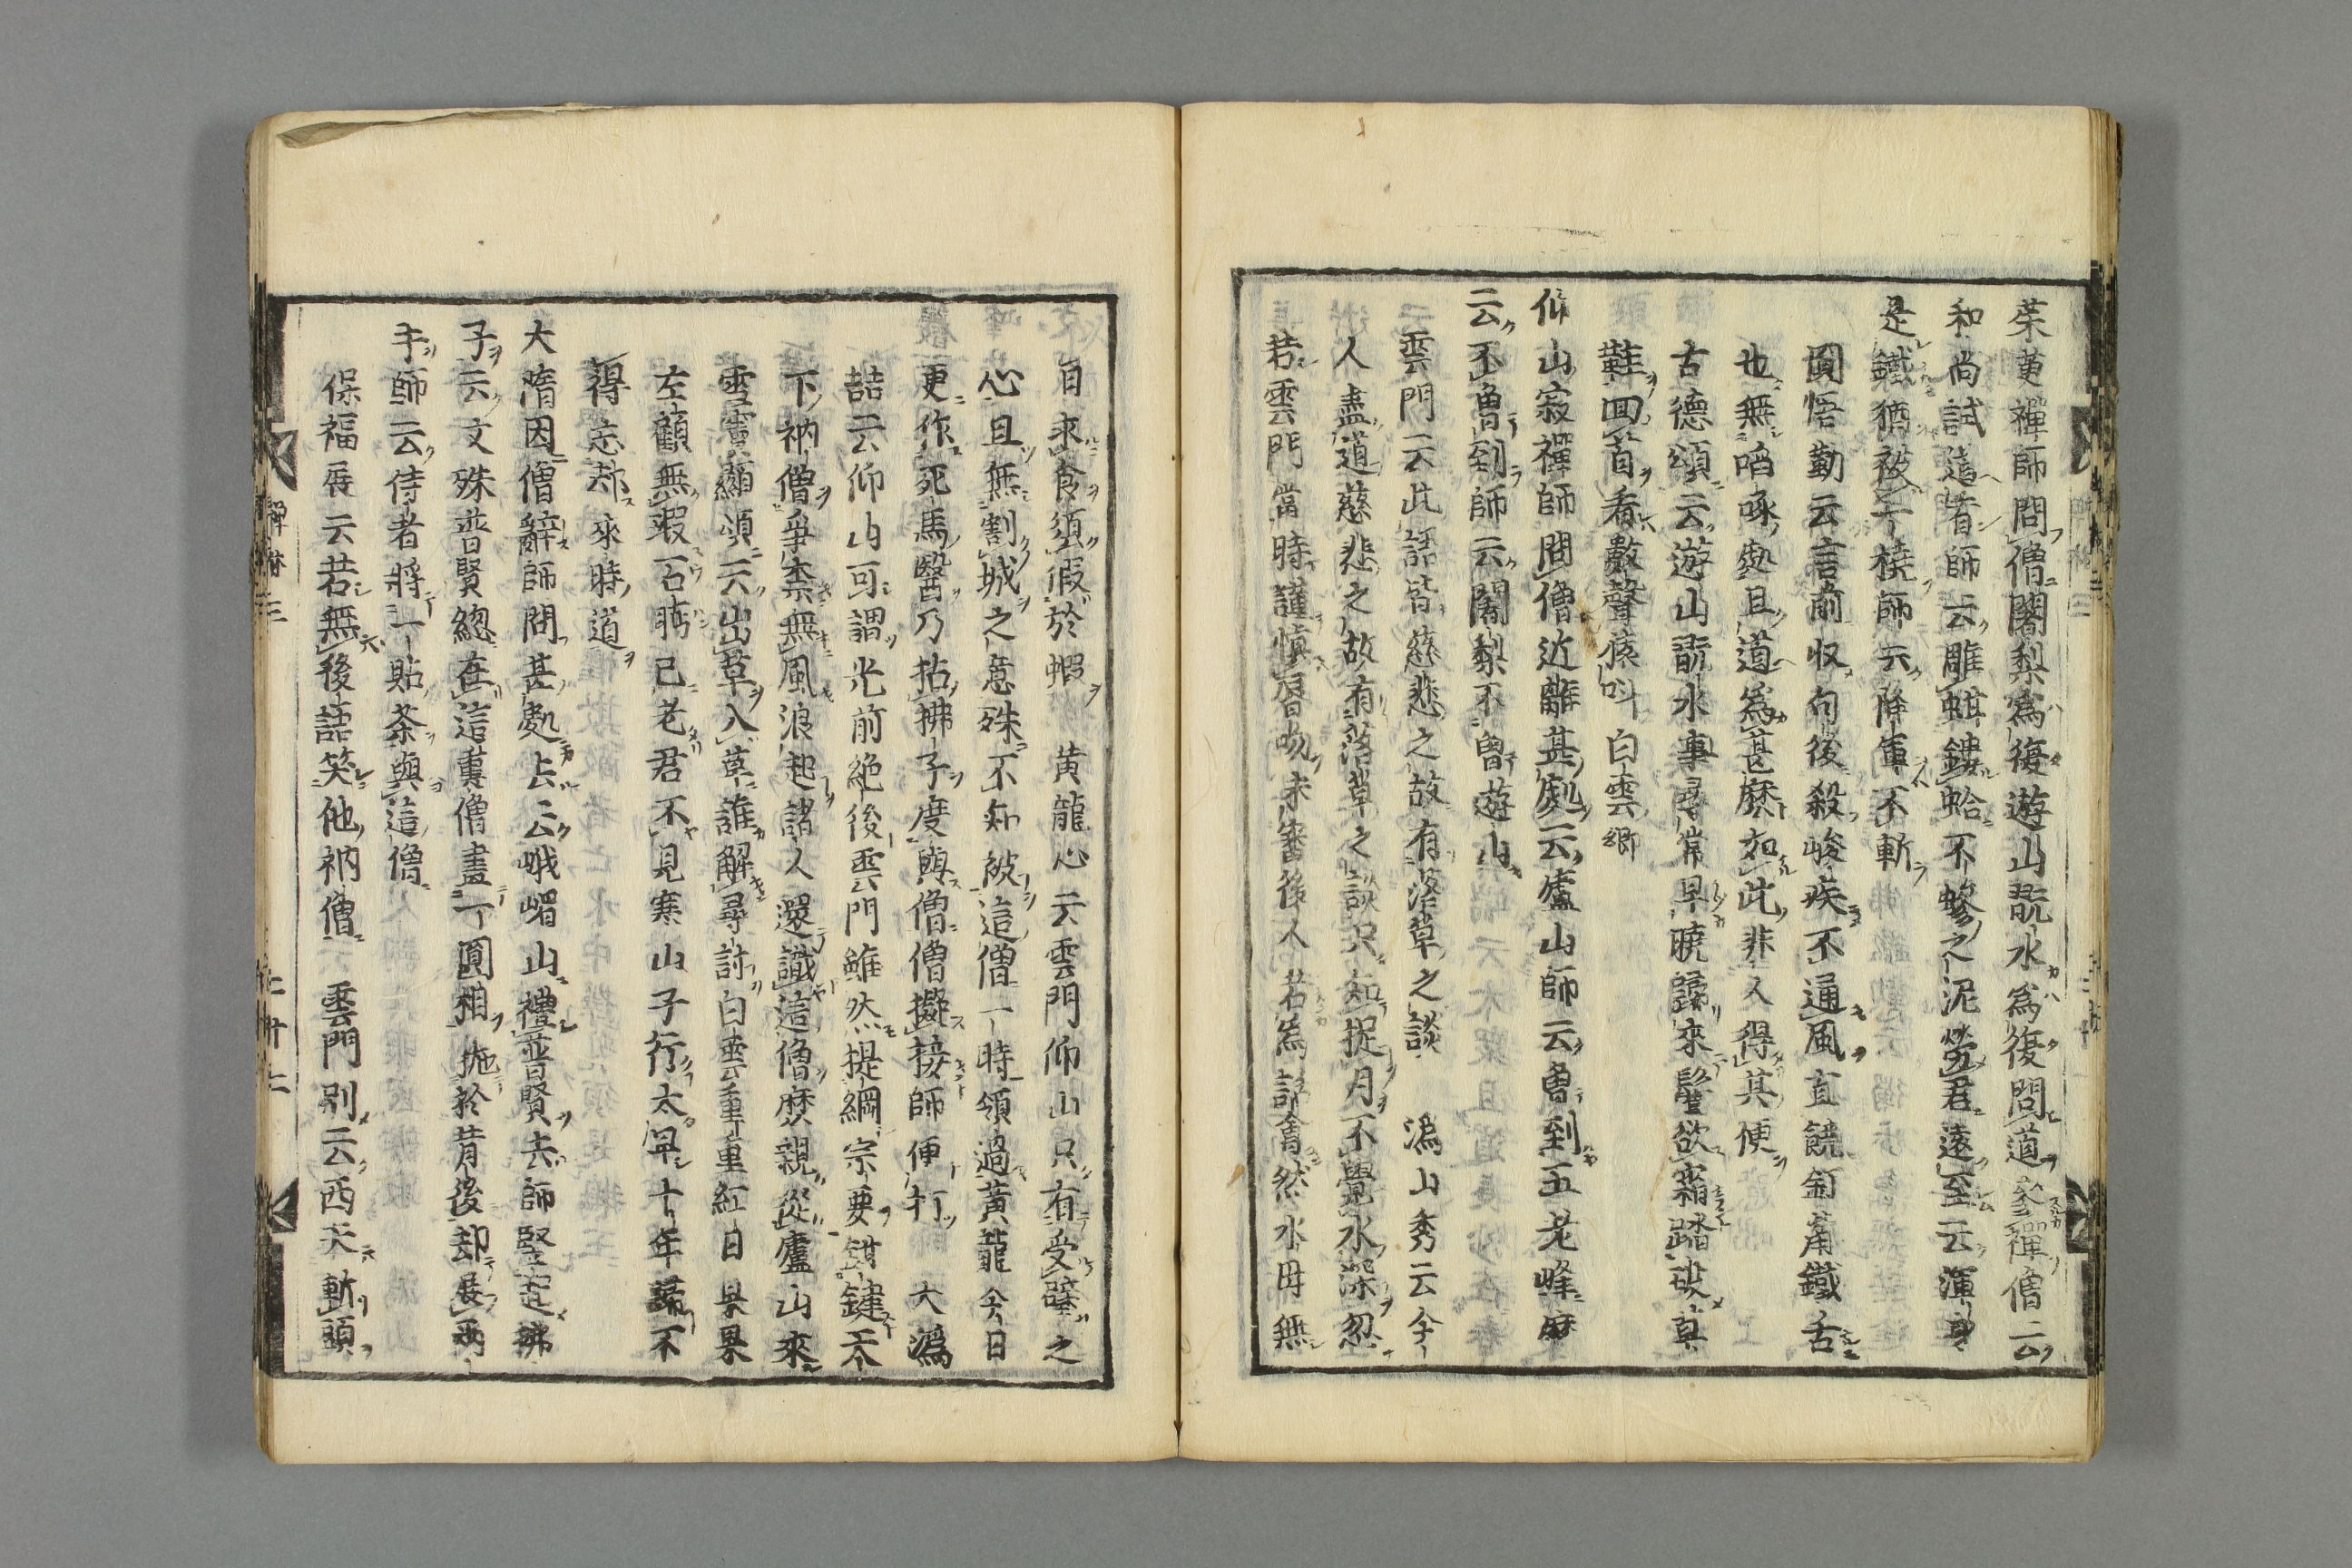 茱萸禪師問僧闍梨爲復遊山翫水爲復問道參禪僧云
和尚試道看師云雕蚶鏤蛤不鰺之泥勞君遠至云渾身
是鐵猶被一橈師云降軍不斬
圓悟勤云言前収句後殺峻疾不通風直饒釘觜鐵舌
也無啗啄處且道爲甚麽如此非人得其便
古德頌云遊山翫水事尋常早曉歸來鬢欲霜踏破草
鞋回首看數聲猿呌白雲郷
仰山寂禪師問僧近離甚處云廬山師云曾到五老峰麽
云不曾到師云闍梨不曾遊山
雲門云此語皆慈悲之故有落草之談 潙山秀云今
人盡道慈悲之故有落草之談只知捉月不覺水深忽
若雲門當時謹愼唇吻未審後人若爲話會然水母無
目求食須假於蝦 黄龍心云雲門仰山只有受璧之
心且無割城之意殊不知被這僧一時領過黃龍今日
更作死馬醫乃拈拂子度與僧僧擬接師便打 大潙
喆云仰山可謂光前絶後雲門雖然提綱宗要鉗鍵天
下衲僧爭柰無風浪起諸人還識這僧麽親從廬山來
雪竇顯頌云出草入草誰解尋討白雲重重紅日杲杲
左顧無瑕右眄已老君不見寒山子行太早十年歸不
得忘却來時道
大隋因僧辭師問甚處去云峨嵋山禮普賢去師竪起拂
子云文殊普賢總在這裏僧畫一圓相抛於背後却展兩
手師云侍者將一貼茶與這僧
保福展云若無後語笑他衲僧 雲門別云西天斬頭